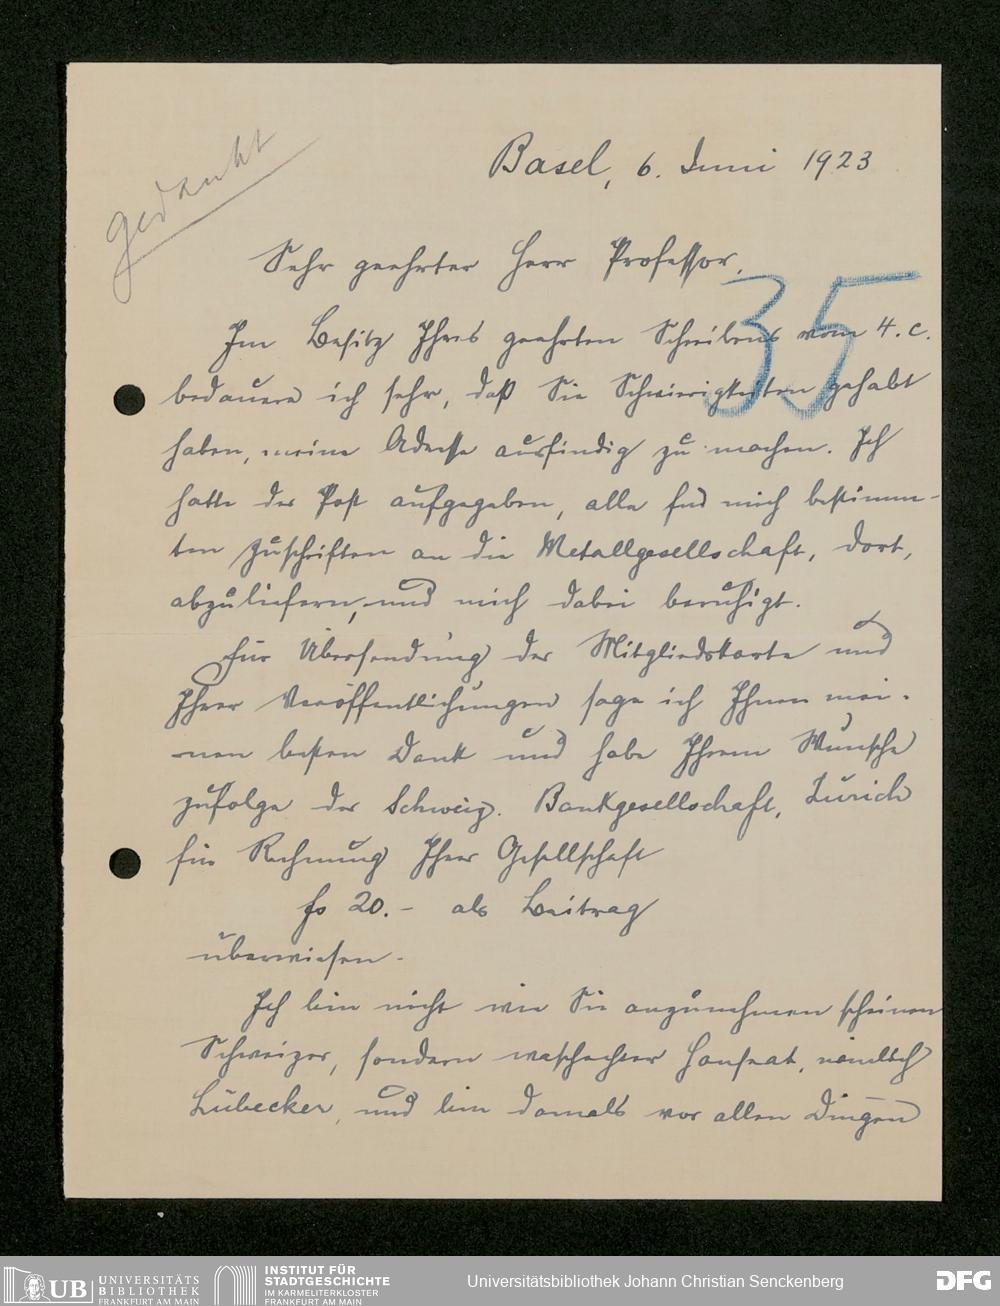 gedankt
Basel, 6. Juni 1923
Sehr geehrter Herr Professor,
35
Im Besitz Ihres geehrten Schreibens vom 4. c.
bedauere ich sehr, daß Sie Schwierigkeiten gehabt
haben, meine Adresse ausfindig zu machen. Ich
hatte der Post aufgegeben, alle für mich bestimm-
ten Zuschriften an die Metallgesellschaft, dort,
abzuliefern, und mich dabei beruhigt.
Für Übersendung der Mitgliedskarte und
Ihrer Veröffentlichungen sage ich Ihnen mei-
nen besten Dank und habe Ihrem Wunsche
zufolge der Schweiz. Bankgesellschaft, Zürich
für Rechnung Ihrer Gesellschaft
fs 20.- als Beitrag
überwiesen.
Ich bin nicht wie Sie anzunehmen scheinen
Schweizer, sondern waschechter Hanseat, nämlich
Lübecker, und bin damals vor allen Dingen
UB UNIVERSITÄTS
BIBLIOTHEK
FRANKFURT AM MAIN
INSTITUT FÜR
STADTGESCHICHTE
IM KARMELITERKLOSTER
FRANKFURT AM MAIN
Universitätsbibliothek Johann Christian Senckenberg
DFG